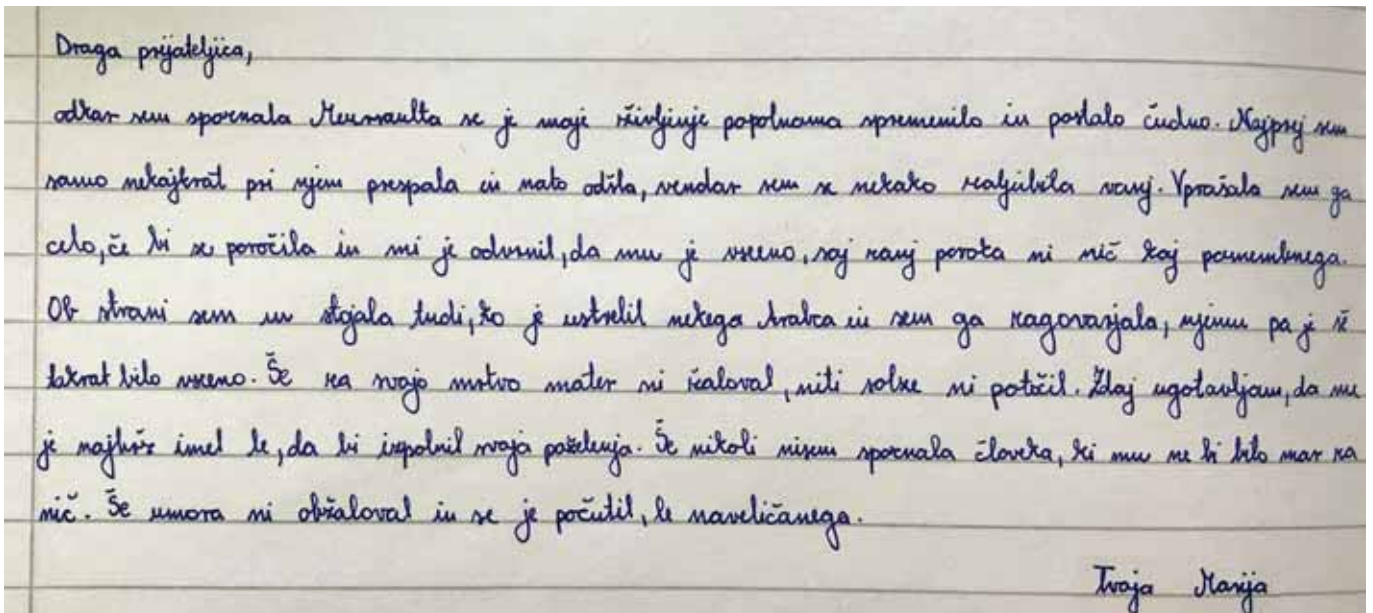 Draga prijateljica,
odkar sem spoznala Meursaulta se je moje življenje popolnoma spremenilo in postalo čudno. Najprej sem
samo nekajkrat pri njem prespala in nato odšla, vendar sem se nekako zaljubila vanj. Vprašala sem ga
celo, če bi se poročila in mi je odvrnil, da mu je vseeno, saj zanj poroka ni nič kaj pomembnega.
Ob strani sem mu stojala tudi, ko je ustrelil nekega Arabca in sem ga zagovarjala, njemu pa je še
takrat bilo vseeno. Še za svojo mrtvo mater ni žaloval, niti solze ni potočil. Zdaj ugotavljam, da me
je najbrž imel le, da bi izpolnil svoja poželenja. Še nikoli nisem spoznala človeka, ki mu ne bi bilo mar za
nič. Še umora ni obžaloval in se je počutil, le naveličanega.
Tvoja Marija